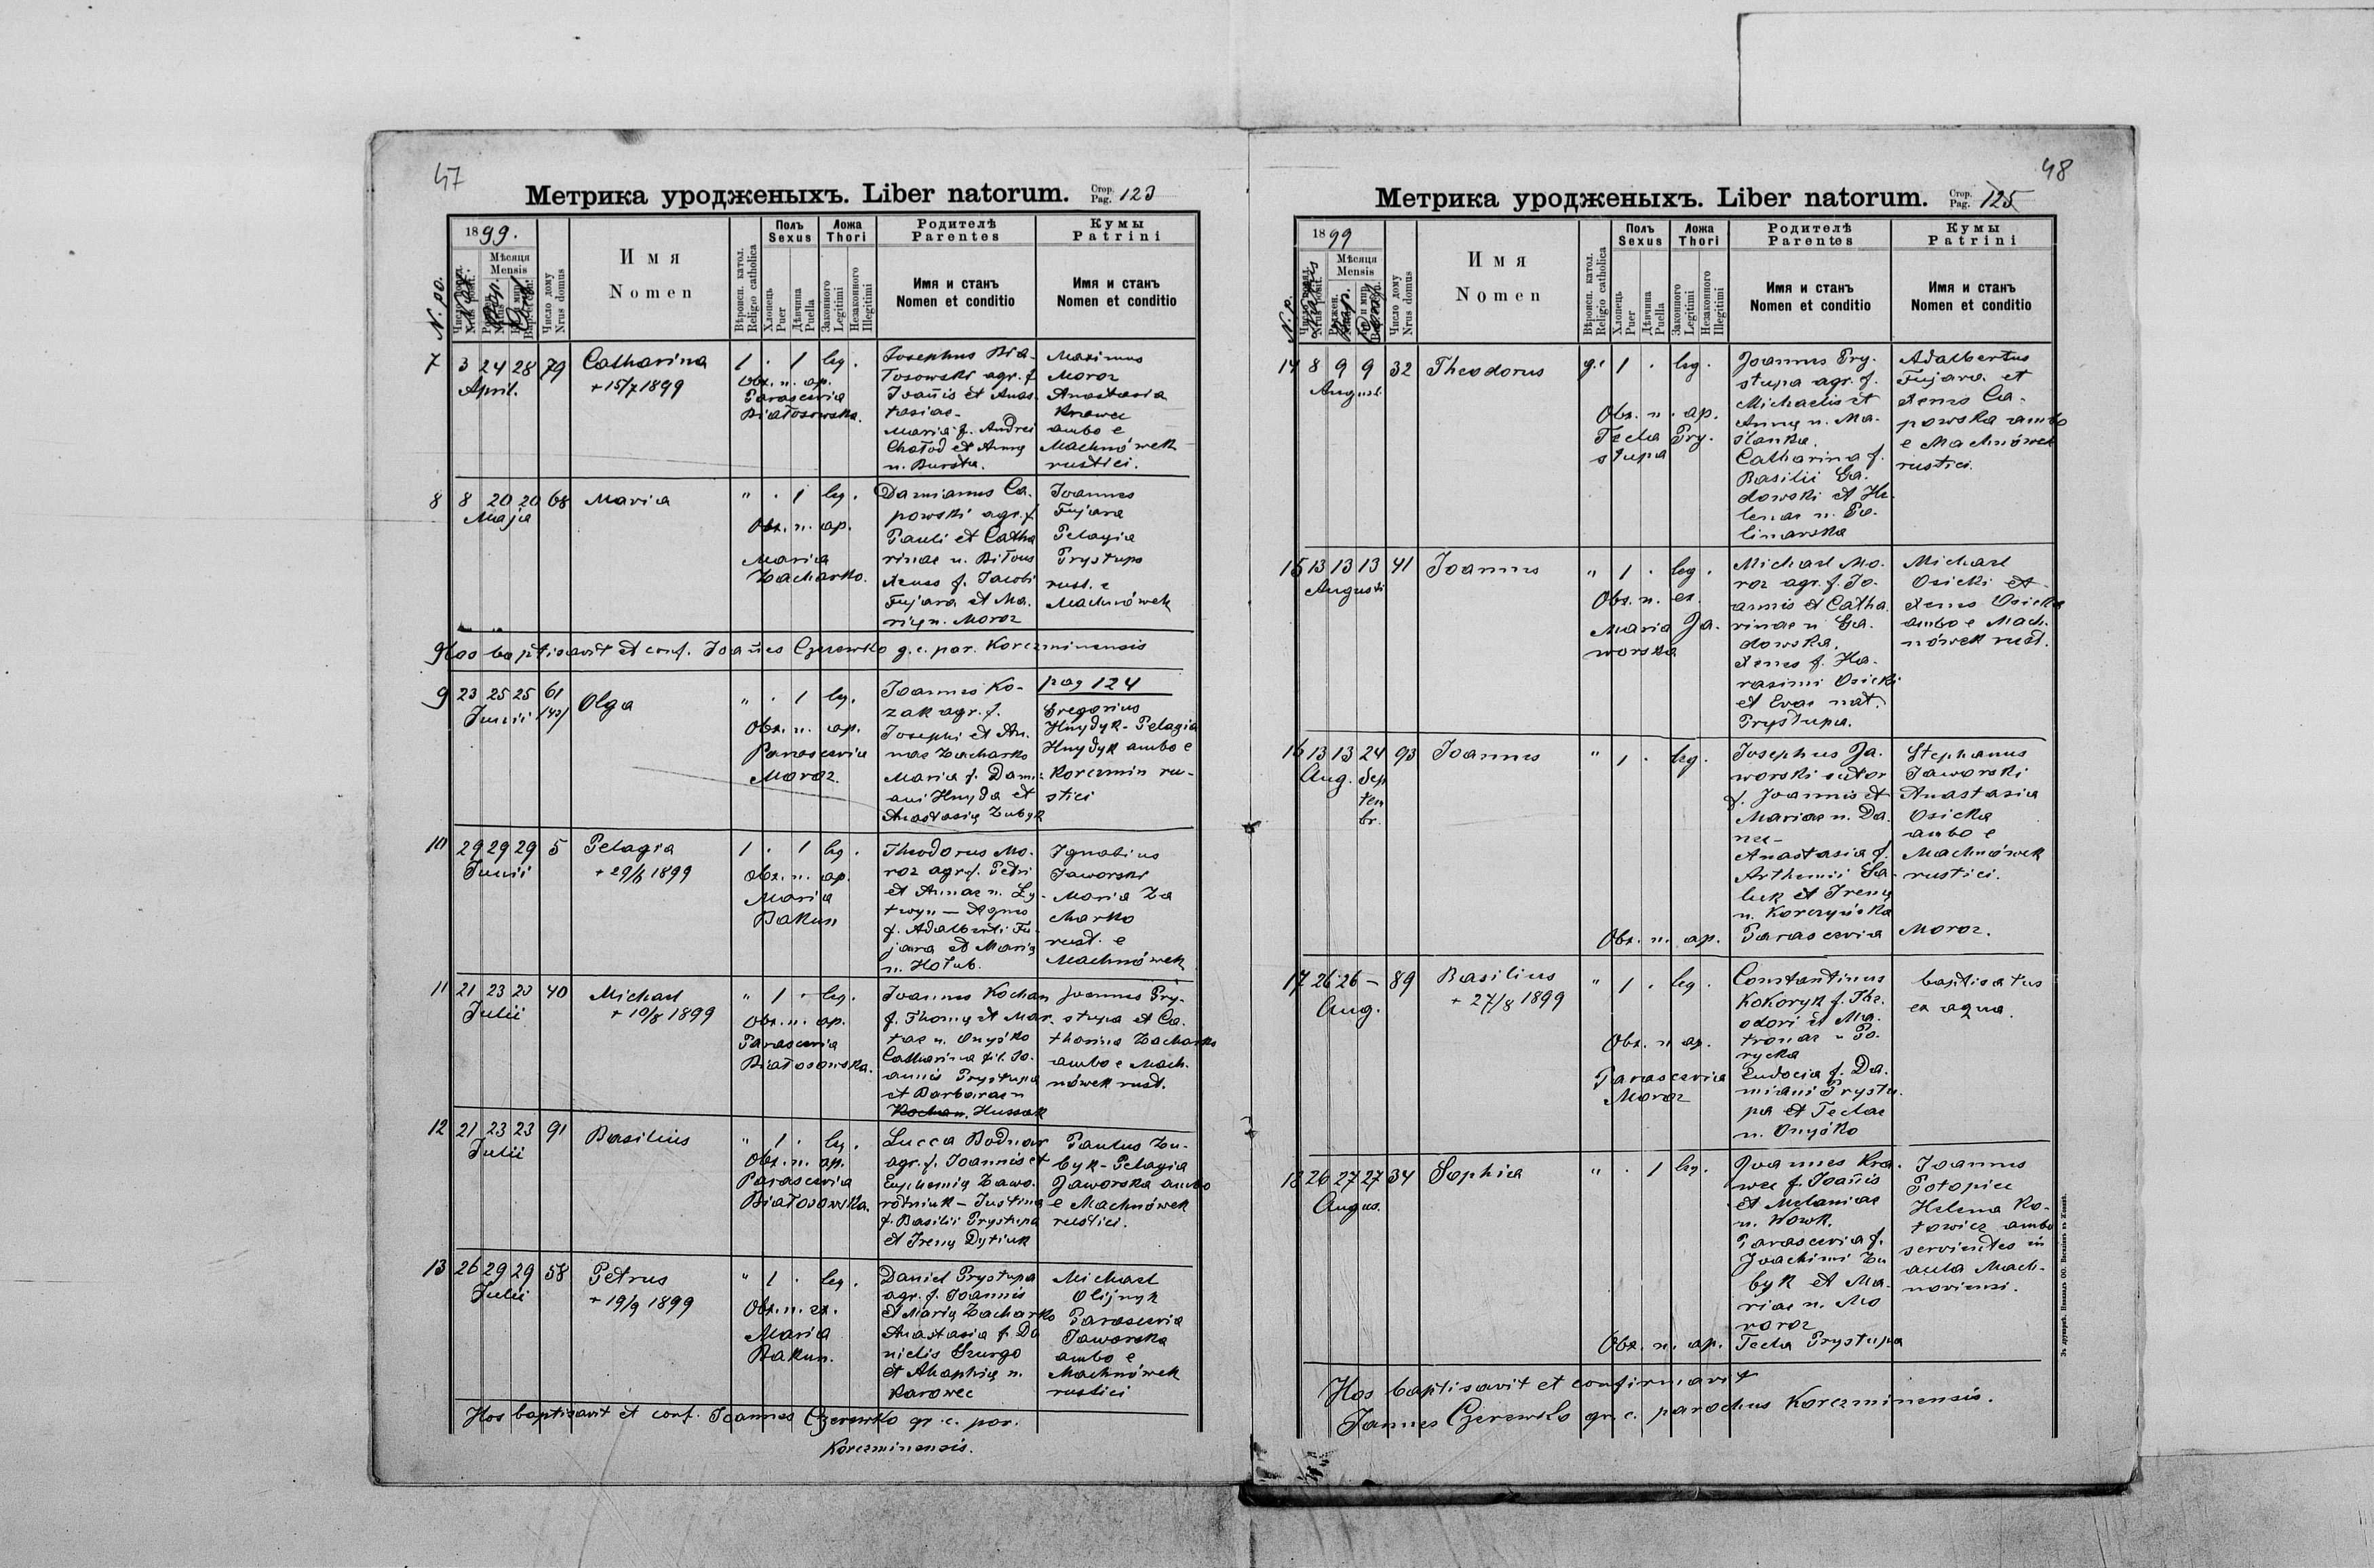 47
Метрика уродженыхъ. Liber natorum. Стор. Pag. 123
1899.
N. po.
Мѣсяця
Mensis
Число дому
Nrus domus
Имя
Nomen
Вѣроисп. катол.
Religio catholica
Полъ
Sexus
Хлопець
Puer
Дѣвчина
Puella
Ложа
Thori
Законного
Legitimi
Незаконного
Illegitimi
Родителѣ
Parentes
Имя и станъ
Nomen et conditio
Кумы
Patrini
Имя и станъ
Nomen et conditio
7 3 24 28 79 Catharina 1 . 1 leg.
April. + 15/7 1899
Obs. n. ap.
Parascevia
Białosowska.
Josephus Bia-
łosowski agr. f.
Joañis et Anas-
tasiae -
Maria f. Andrei
Chołod et Annę
n. Bursta.
Maximus
Moroz
Anastasia
Krawec
ambo e
Machnówek
rustici.
8 8 20 20 68 Maria " . 1 leg.
Maja
Obs. n. ap.
Maria
Zacharko.
Damianus Ca-
powski agr. f.
Pauli et Catha
rinae n. Biłous
Xenia f. Jacobi
Fujara et Ma-
rię n. Moroz
Joannes
Fujara
Pelagia
Prystupa
rust. e
Machnówek
Hos baptisavit et conf. Joañes Czerewko g.c. par. Korczminensis
9 23 25 25 61 Olga " . 1 leg.
Junii
Obs. n. ap.
Parascevia
Moroz.
Joannes Ko-
zak agr. f.
Josephi et An-
nae Zacharko
Maria f. Dami-
ani Hnyda et
Anastasię Zubyk
pag 124
Gregorius
Hnydyk - Pelagia
Hnydyk ambo e
Korczmin ru-
stici
10 29 29 29 5 Pelagia 1 . 1 leg.
Junii + 29/6 1899
Obs. n. ap.
Maria
Bakun
Theodorus Mo-
roz agr. f. Petri
et Annae n. Ly-
twyn - Agnes
f. Adalberti Fu-
jara et Marię
n. Hołub.
Ignatius
Jaworski
Maria Za
charko
rust. e
Machnówek
11 21 23 23 40 Michael " 1 . leg.
Julii + 10/8 1899
Obs. n. ap.
Parascevia
Białosowska.
Joannes Kochan
f. Thomę et Mar-
tae n. Onyśko
Catharina fil. Jo-
annis Prystupa
et Barbarae n
Kochan. Hussak
Joannes Pry-
stupa et Ca-
tharina Zacharko
ambo e Mach-
nówek rust.
12 21 23 23 91 Basilius " 1 . leg.
Julii
Obs. n. ap.
Parascevia
Białosowska.
Lucca Bodnar
agr. f. Joannis et
Euphemię Zawo-
rotniuk - Justina
f. Basilii Prystupa
et Irenę Dytiuk
Paulus Zu-
byk - Pelagia
Jaworska ambo
e Machnówek
rustici.
13 26 29 29 58 Petrus " 1 . leg.
Julii + 19/9 1899
Obs. n. ex.
Maria
Bakun.
Daniel Prystupa
agr. f. Joannis
et Marię Zacharko
Anastasia f. Da
nielis Szurgo
et Ahaphię n.
Karowec
Michael
Olijnyk
Parascevia
Jaworska
ambo e
Machnówek
rustici
Hos baptisavit et conf. Joannes Czerewko gr. c. par.
Korczminensis.
48
Метрика уродженыхъ. Liber natorum. Стор. Pag. 125
1899
N. p.
Мѣсяця
Mensis
Число дому
Nrus domus
Имя
Nomen
Вѣроисп. катол.
Religio catholica
Полъ
Sexus
Хлопець
Puer
Дѣвчина
Puella
Ложа
Thori
Законного
Legitimi
Незаконного
Illegitimi
Родителѣ
Parentes
Имя и станъ
Nomen et conditio
Кумы
Patrini
Имя и станъ
Nomen et conditio
14 8 9 9 32 Theodorus g.c 1 . leg.
August.
Obs. n. ap.
Tecla Pry-
stupa
Joannes Pry-
stupa agr. f.
Michaelis et
Annę n. Ma-
ślanka.
Catharina f.
Basilii Ga-
dowski et He-
lenae n. Po-
linarska
Adalbertus
Fujara et
Xenia Ca-
powska ambo
e Machnówek
rustici.
15 13 13 13 41 Joannes " 1 . leg.
Augusti
Obs. n. ex.
Maria Ja-
worska
Michael Mo-
roz agr. f. Jo-
annis et Catha-
rinae n Ga-
dowska.
Xenia f. Ha-
rasimi Osicki
et Evae nat.
Prystupa.
Michael
Osicki et
Xenia Osicka
ambo e Mach-
nówek rust.
16 13 13 24 93 Joannes " 1 . leg.
Aug. Sep
tem
br.
Josephus Ja-
worski sutor
f. Joannis et
Mariae n. Da-
nec -
Anastasia f.
Arthemii Sa-
luk et Irenę
n. Korczyńska
Stephanus
Jaworski
Anastasia
Osicka
ambo e
Machnówek
rustici.
Obs. n. ap. Parascevia Moroz.
17 26 26 - 89 Basilius " 1 . leg.
Aug. + 27/8 1899
Obs. n ap.
Parascevia
Moroz
Constantinus
Kokoryk f. The-
odori et Ma-
tronae n Po-
rycka
Eudocia f. Da-
miani Prystu-
pa et Teclae
n. Onyśko
baptisatus
ex aqua.
18 26 27 27 34 Sophia " . 1 leg.
Augus.
Joannes Kra-
wec f. Joañis
et Melaniae
n. Wowk.
Parascevia f.
Joachimi Zu
byk et Ma-
riae n. Mo
roroz
Joannes
Potopiec
Helena Ko-
towicz ambo
servientes in
aula Mach-
noviensi.
Obs. n. ap. Tecla Prystupa
Hos baptisavit et confirmavit
Joannes Czerewko gr. c. parochus Korczminensis.